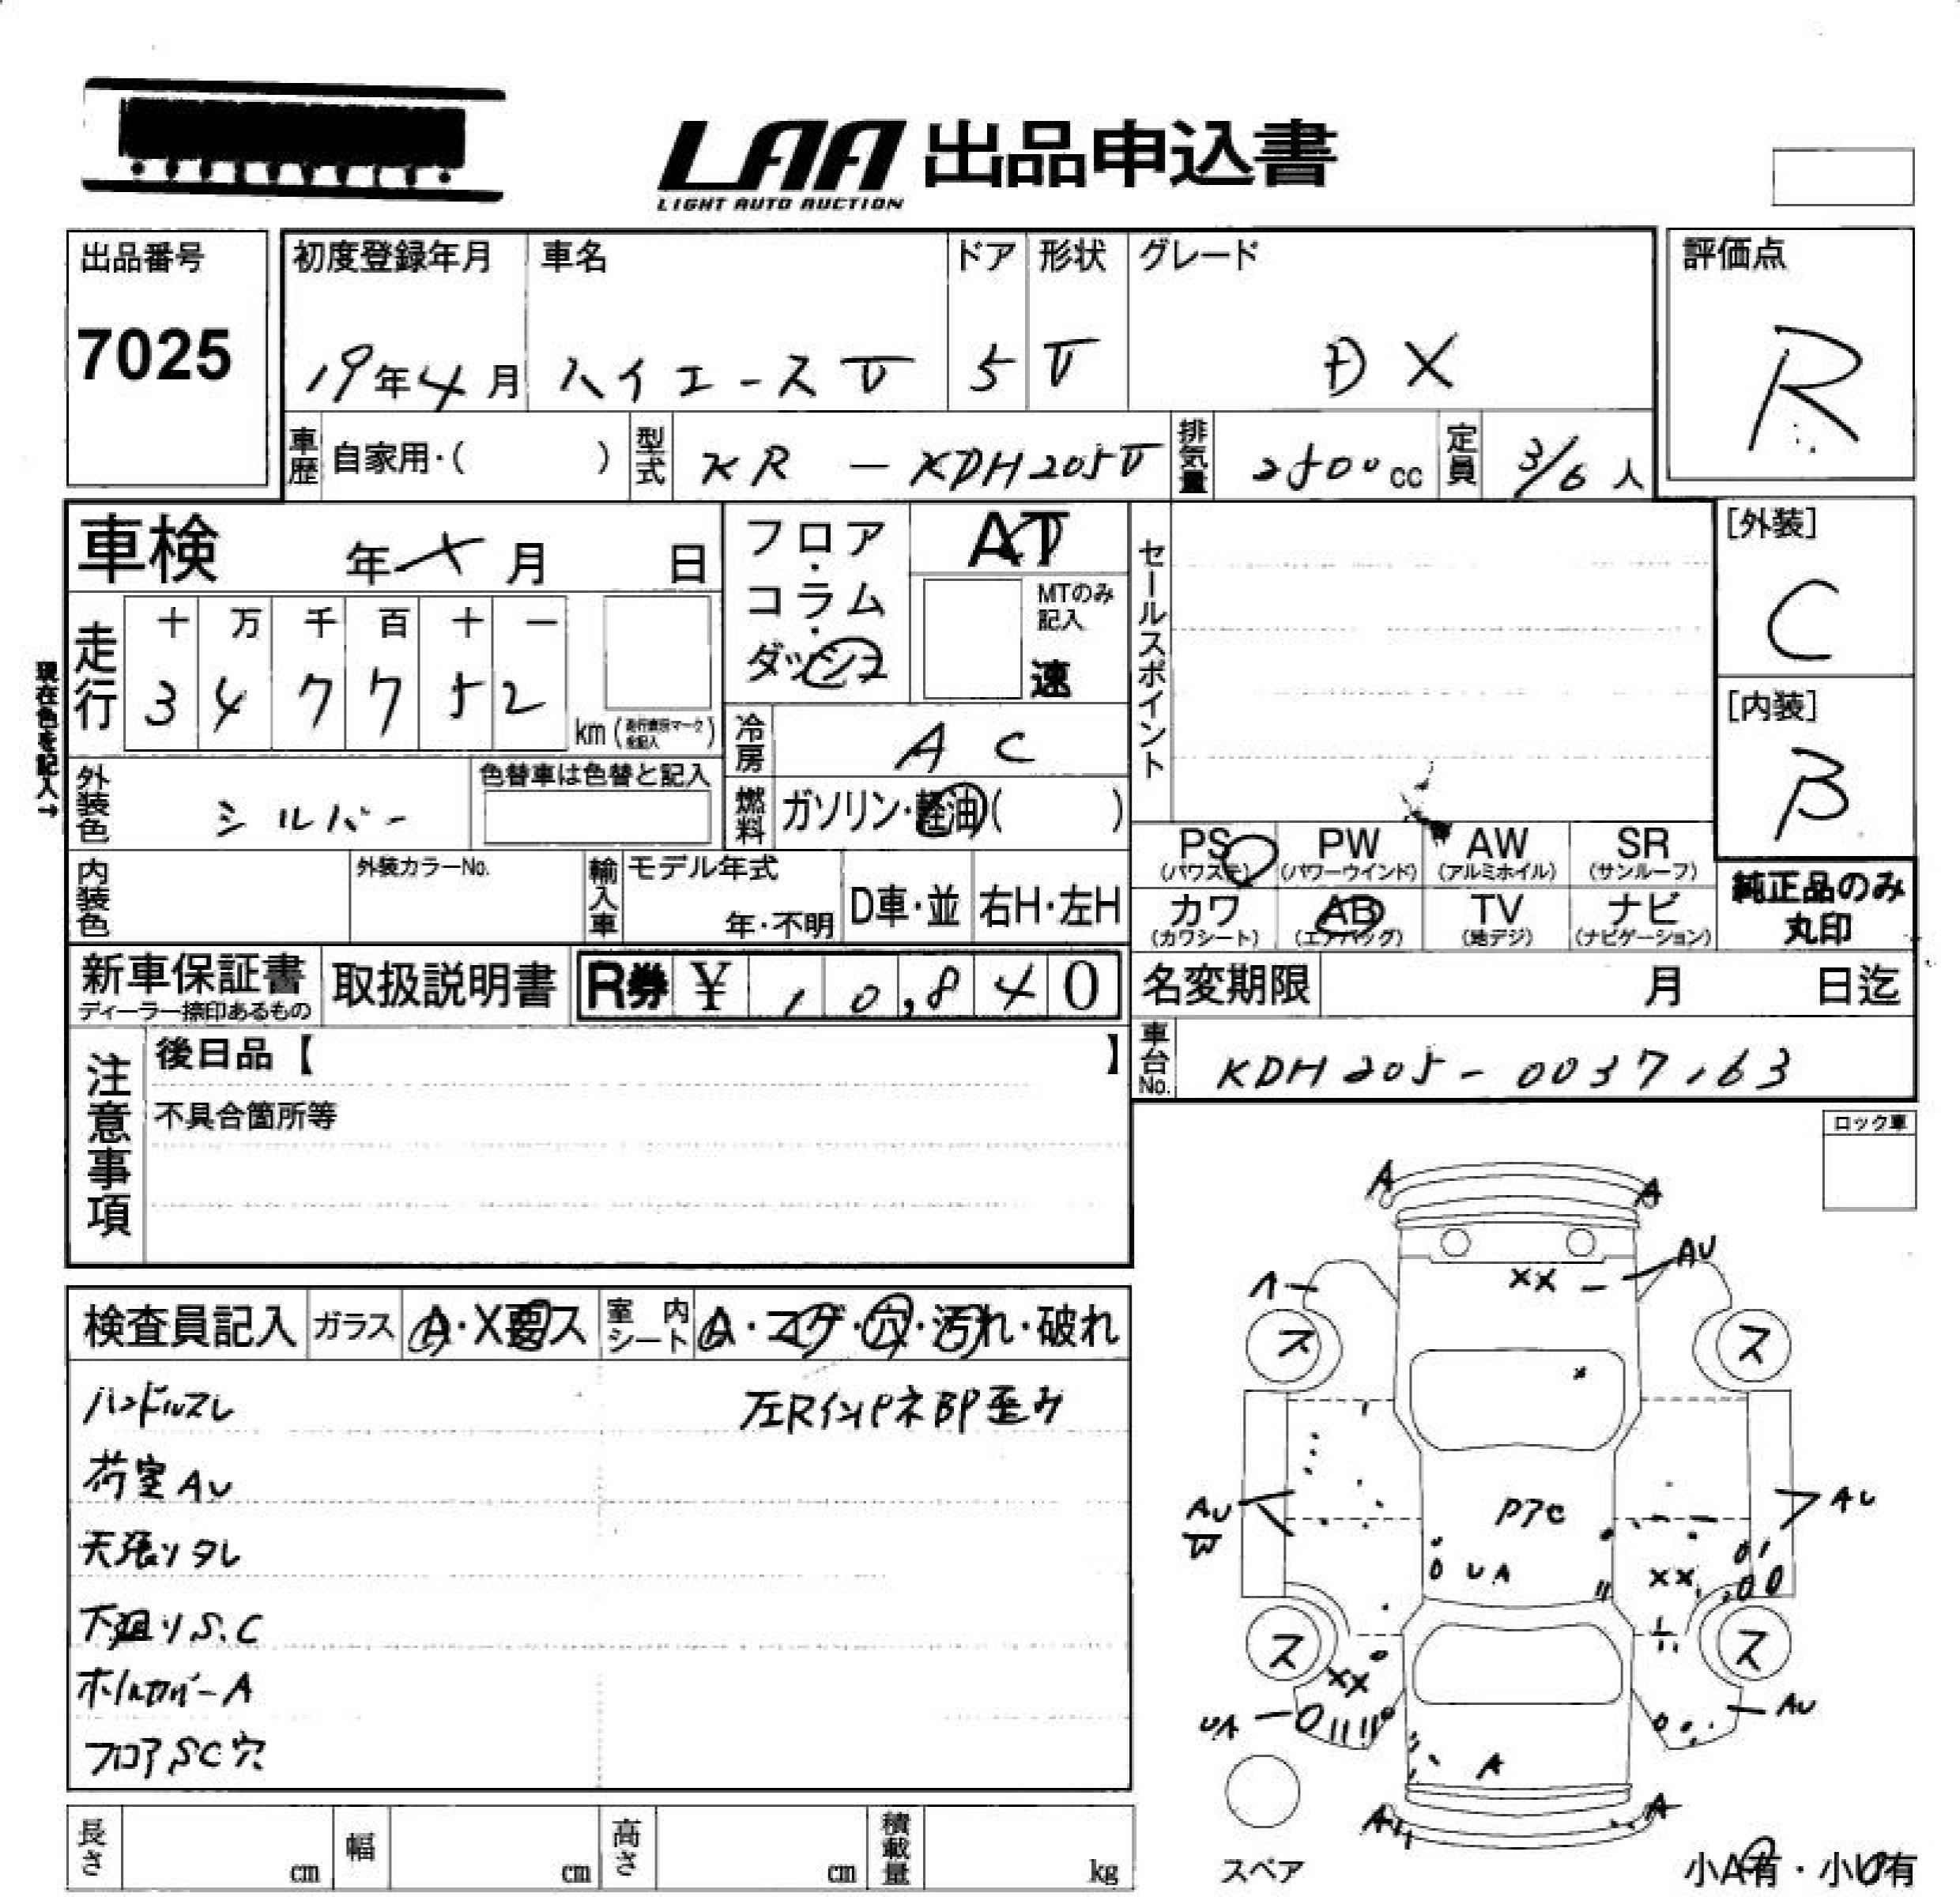 LAA 出品申込書
LIGHT AUTO AUCTION
出品番号
7025
初度登録年月 車名 ドア 形状 グレード
19年4月 ハイエースV 5 V DX
評価点
R
車歴 自家用・( ) 型式 KR - KDH205V 排気量 2500cc 定員 3/6人
車検 年 × 月 日
フロア・コラム・ダッシュ
AT
MTのみ記入
速
セールスポイント
[外装]
C
現在色を記入→
走行 十 万 千 百 十 一
3 4 7 7 5 2 km
[内装]
B
冷房 AC
外装色 シルバー 色替車は色替と記入
燃料 ガソリン・軽油( )
PS PW AW SR
(パワステ) (パワーウインド) (アルミホイル) (サンルーフ)
カワ AB TV ナビ
(カワシート) (エアバッグ) (地デジ) (ナビゲーション)
純正品のみ
丸印
内装色 外装カラーNo. 輸入車 モデル年式 年・不明 D車・並 右H・左H
新車保証書 取扱説明書 R券 ¥ 10,840
ディーラー捺印あるもの
名変期限 月 日迄
車台No. KDH205-0037163
注意事項
後日品【 】
不具合箇所等
ロック車
検査員記入 ガラス A・X要ス 室内シート A・コゲ・穴・汚れ・破れ
ハンドルスレ 左RインPネBP歪み
荷室AU
天張りタレ
下廻りS.C
ホイルカバーA
フロアSC穴
A A
A XX AU
ス ス
AU
W
P7C
AU
UA XX
ス ス
XX
UA AU
A
A A
スペア
小A有・小U有
長さ cm 幅 cm 高さ cm 積載量 kg